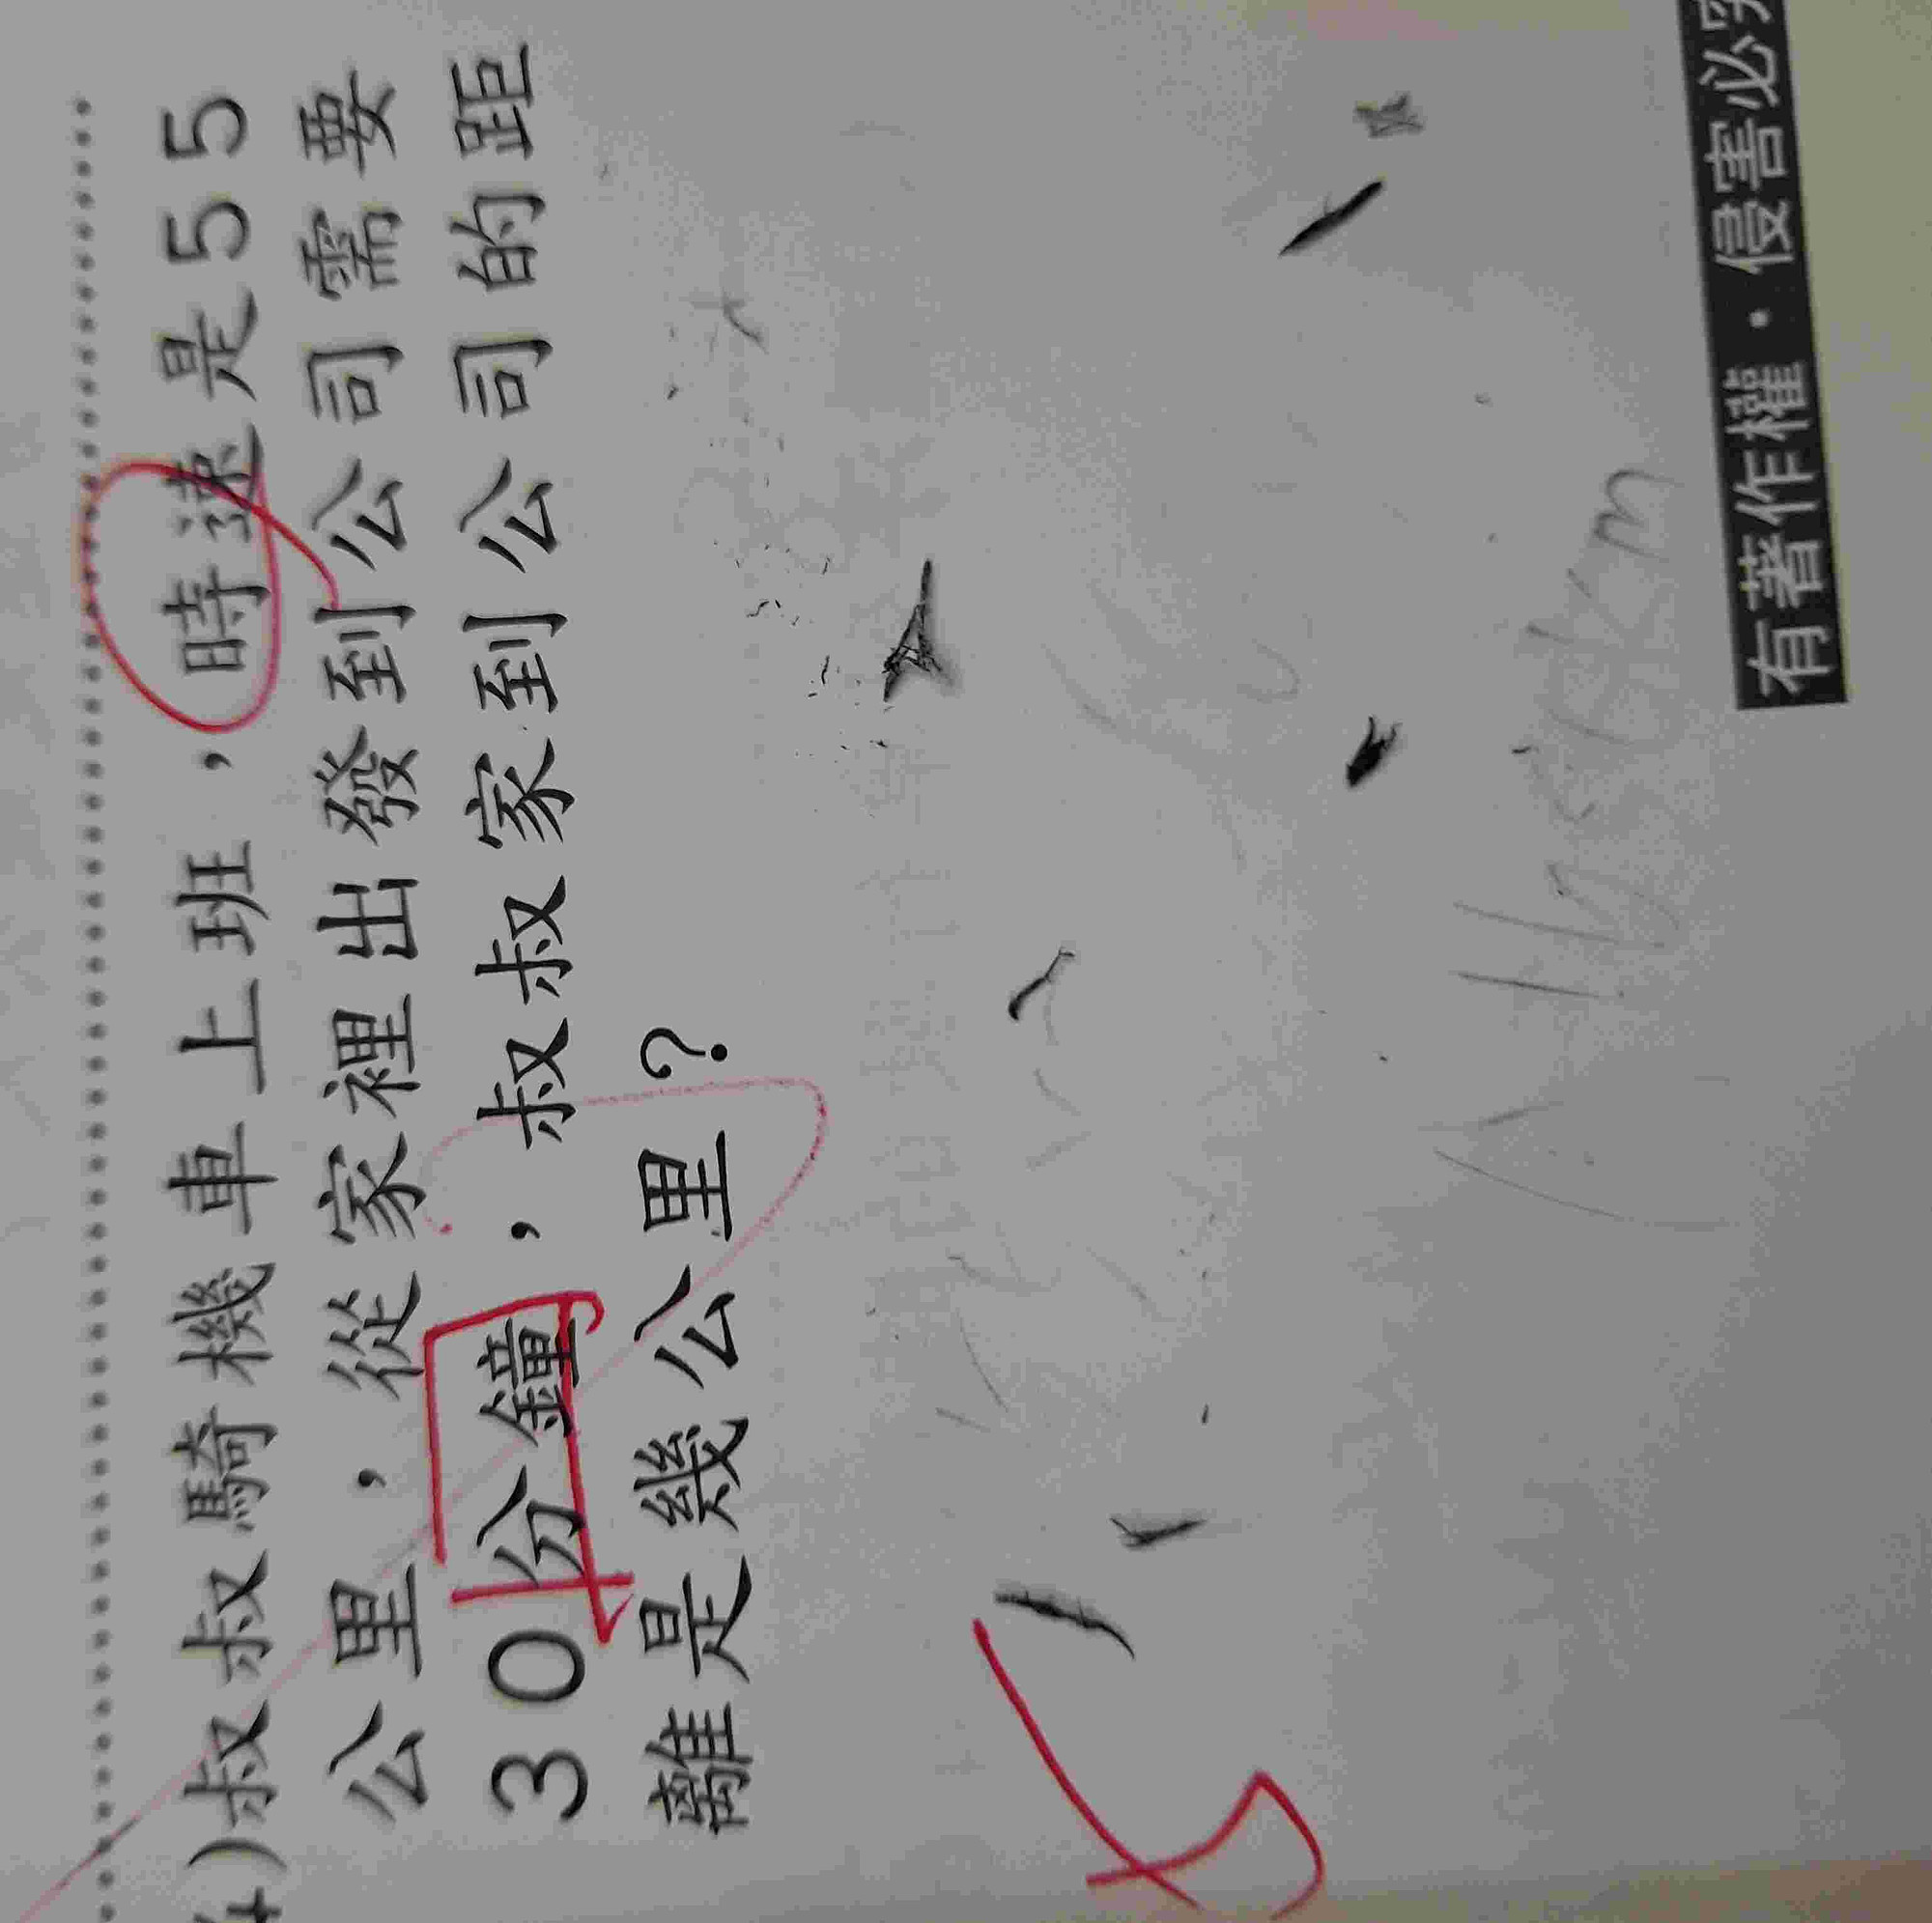 4)叔叔騎機車上班，時速是55
公里，從家裡出發到公司需要
30分鐘，叔叔家到公司的距
離是幾公里？
有著作權・侵害必究